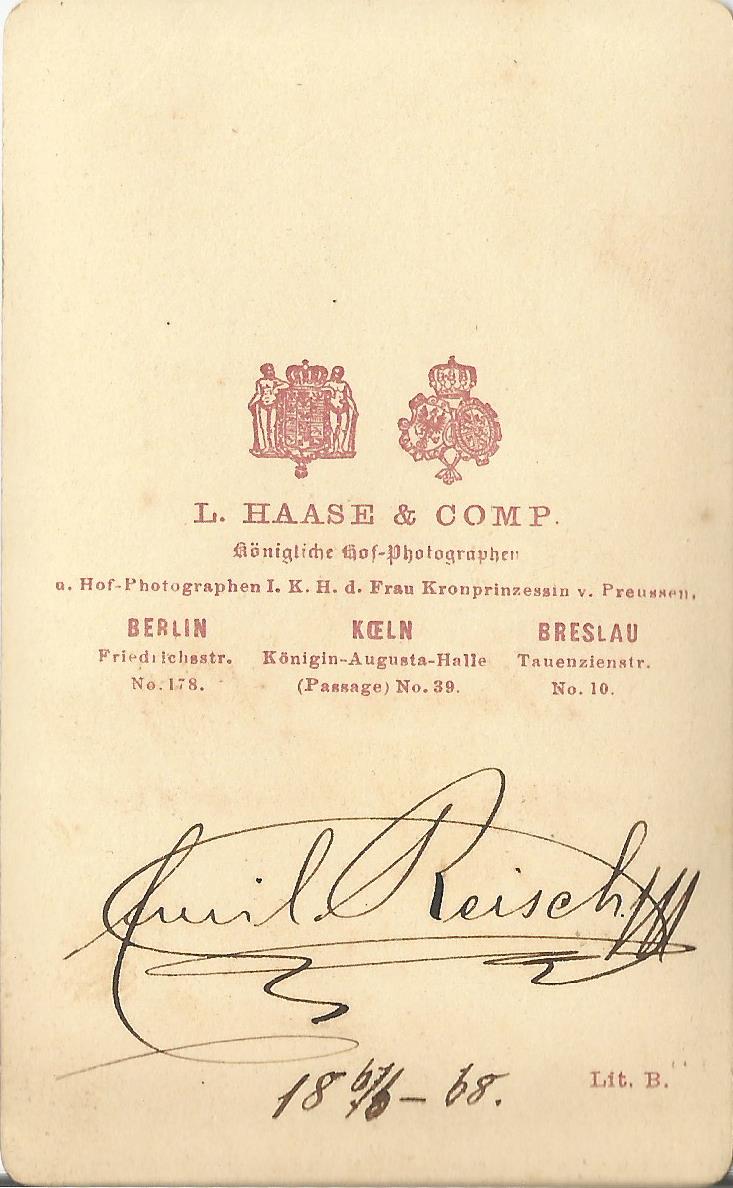 L. HAASE & COMP.
Königliche Hof-Photographen
u. Hof-Photographen I. K. H. d. Frau Kronprinzessin v. Preussen.
BERLIN KŒLN BRESLAU
Friedrichsstr. Königin-Augusta-Halle Tauenzienstr.
No. 178. (Passage) No. 39. No. 10.
Emil Reisch
18 – 68.
Lit. B.